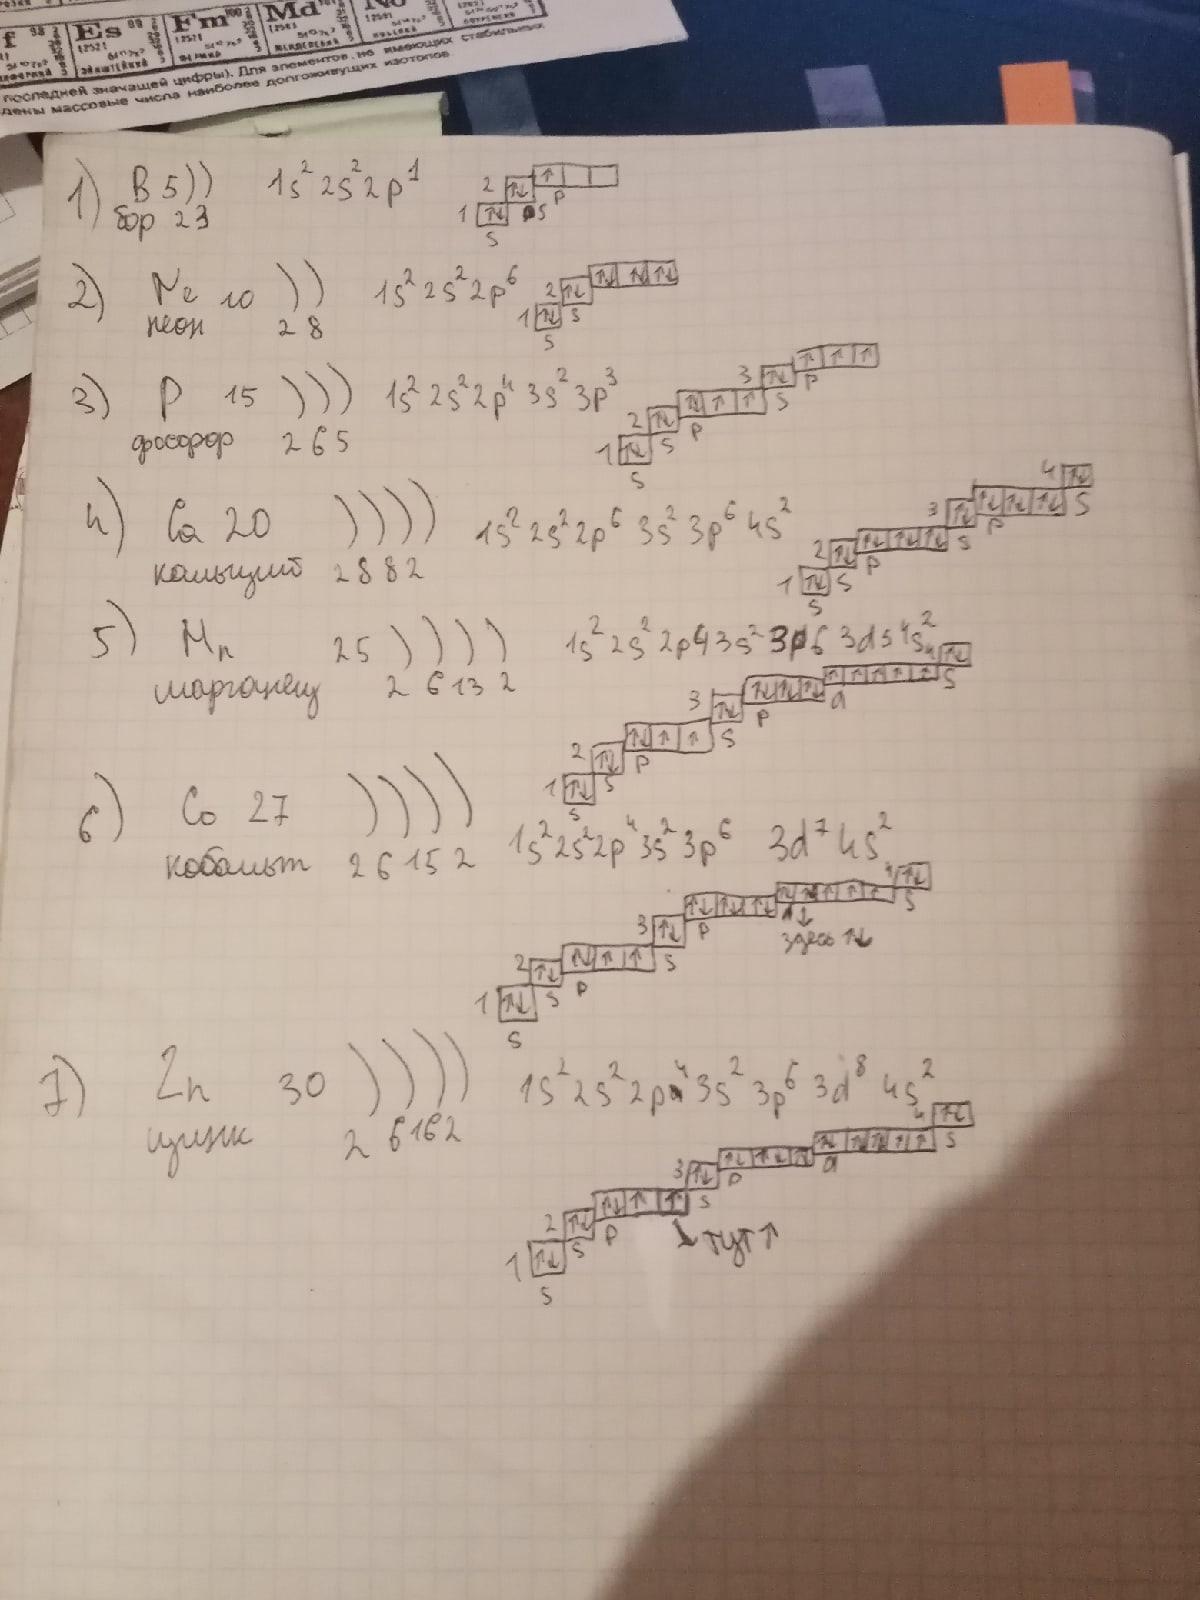 Es 99 Fm 100 Md 101 No
последней значащей цифры). Для элементов, не имеющих стабильных
дены массовые числа наиболее долгоживущих изотопов.
1) B 5)) 1s² 2s² 2p¹
бор 2 3
2) Ne 10 )) 1s² 2s² 2p⁶
неон 2 8
3) P 15 ))) 1s² 2s² 2p⁴ 3s² 3p³
фосфор 2 6 5
4) Ca 20 )))) 1s² 2s² 2p⁶ 3s² 3p⁶ 4s²
кальций 2 8 8 2
5) Mn 25 )))) 1s² 2s² 2p4 3s² 3p6 3d5 4s²
марганец 2 6 13 2
6) Co 27 )))) 1s² 2s² 2p⁴ 3s² 3p⁶ 3d⁷ 4s²
кобальт 2 6 15 2
здесь ↑↓
7) Zn 30 )))) 1s² 2s² 2p⁴ 3s² 3p⁶ 3d⁸ 4s²
цинк 2 6 16 2
тут ↑